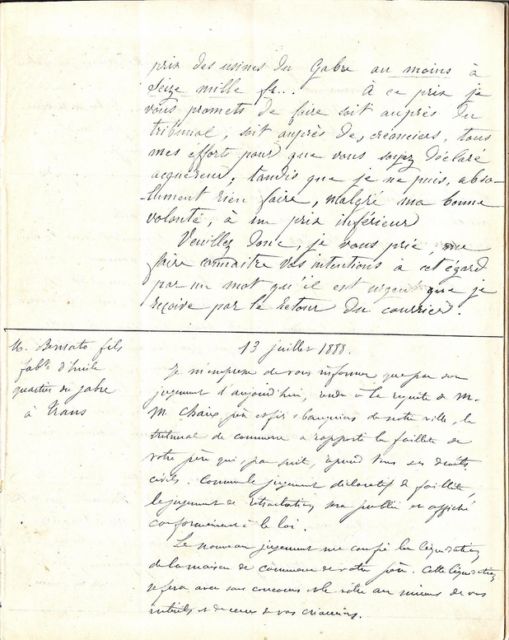 prix des usines du Gabre au moins à
seize mille fr... À ce prix je
vous promets de faire soit auprès du
tribunal, soit auprès des créanciers, tous
mes efforts pour que vous soyez déclaré
acquéreur, tandis que je ne puis, abso-
lument rien faire, malgré ma bonne
volonté, à un prix inférieur
Veuillez donc, je vous prie, me
faire connaître vos intentions à cet égard
par un mot qu'il est urgent que je
reçoive par le retour du courrier.
M. fils
fabt d'huile
quartier du gabre
à Trans
13 juillet 1888.
Je m'empresse de vous informer que par son
jugement d'aujourd'hui, rendu à la requête de M.
M. Chaix père et fils, banquiers de notre ville, le
tribunal de commerce a rapporté la faillite de
votre père qui, par suite, reprend tous ses droits
civils. Comme le jugement déclaratif de faillite,
le jugement de rétractation sera publié et affiché
conformément à la loi.
Le nouveau jugement me confie la liquidation
de la maison de commerce de votre père. Cette liquidation
se fera avec son concours et le vôtre au mieux de vos
intérêts et de ceux de vos créanciers.